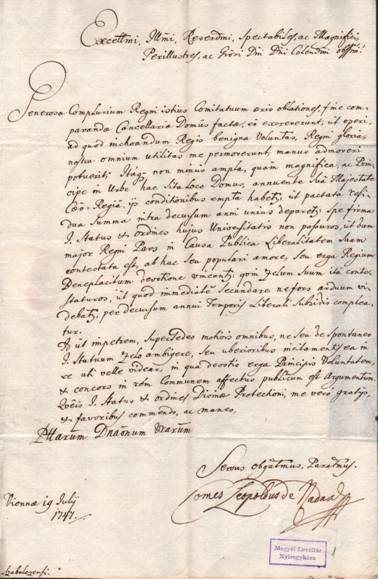 Excellmi, Illmi, Reverdmi, Spectabiles, ac Magnifici,
Perillustres, ac Grosi Dni Dni Colendmi
Generosa Complurium Regni istius Comitatuum aeris oblationes, sive com-
paranda Cancellariae Domus facta, eo exercuerunt, ut operi,
ad quod inchoandum Regis benigna Voluntas, Regni gloria,
nostra omnium utilitas me permoverunt, manus admoveri
potuerit. Itaq non minus ampla, quam magnifica, ac Prin-
cipe in Urbe hac Sita Loco Domus, annuente Sua Majestate
Regia, conditionibus empta habetur, ut pactata resi-
dua Summa intra decursum anni unius deponatur. Spe firma
I. Status & Ordines hujus Universitatis non passuros, ut dum
major Regni Pars in Causa Publica Liberalitatem Suam
contestata est, ab hac Seu populari amore, Seu erga Regium
Beneplacitum devotione vincantur,
staturos, id quod immediate Secundare ne foret arduum vi-
debatur, per decursum annui Temporis Liberali Subsidio complea-
tur.
Id ut impetrem, Supersedeo motivis omnibus, ne Seu de Spontaneo
I. Statuum Zelo ambigere, Seu uberioribus incitamentis ea in
re uti velle videar, in qua devotio erga Principis Voluntatem,
& concors in rem Communem affectus publicum est Argumentum.
I. Status & Ordines Divinae Protectioni, me vero gratijs,
& favoribus commendo, ac maneo,
Dnaonum Vrarum
Servus obgatmus, Paratmus.
Comes Leopoldus de Nadasd
Viennae 19 July
1747.
Megyei Levéltár
Nyíregyháza
Szabolcsensi